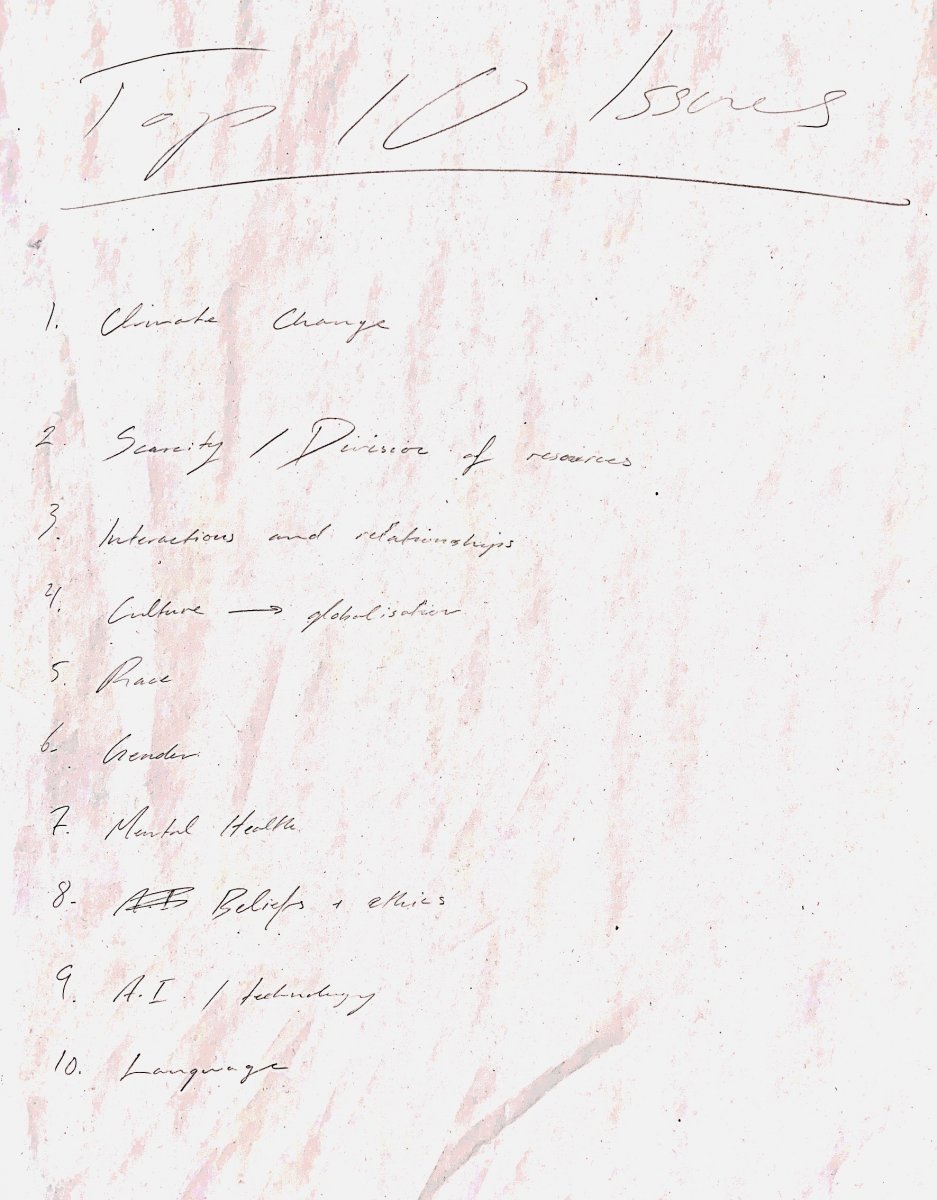 Top 10 Issues
1. Climate Change
2. Scarcity / Division of resources
3. Interactions and relationships
4. Culture → globalisation
5. Race
6. Gender
7. Mental Health
8. Beliefs + ethics
9. A.I / technology
10. Language